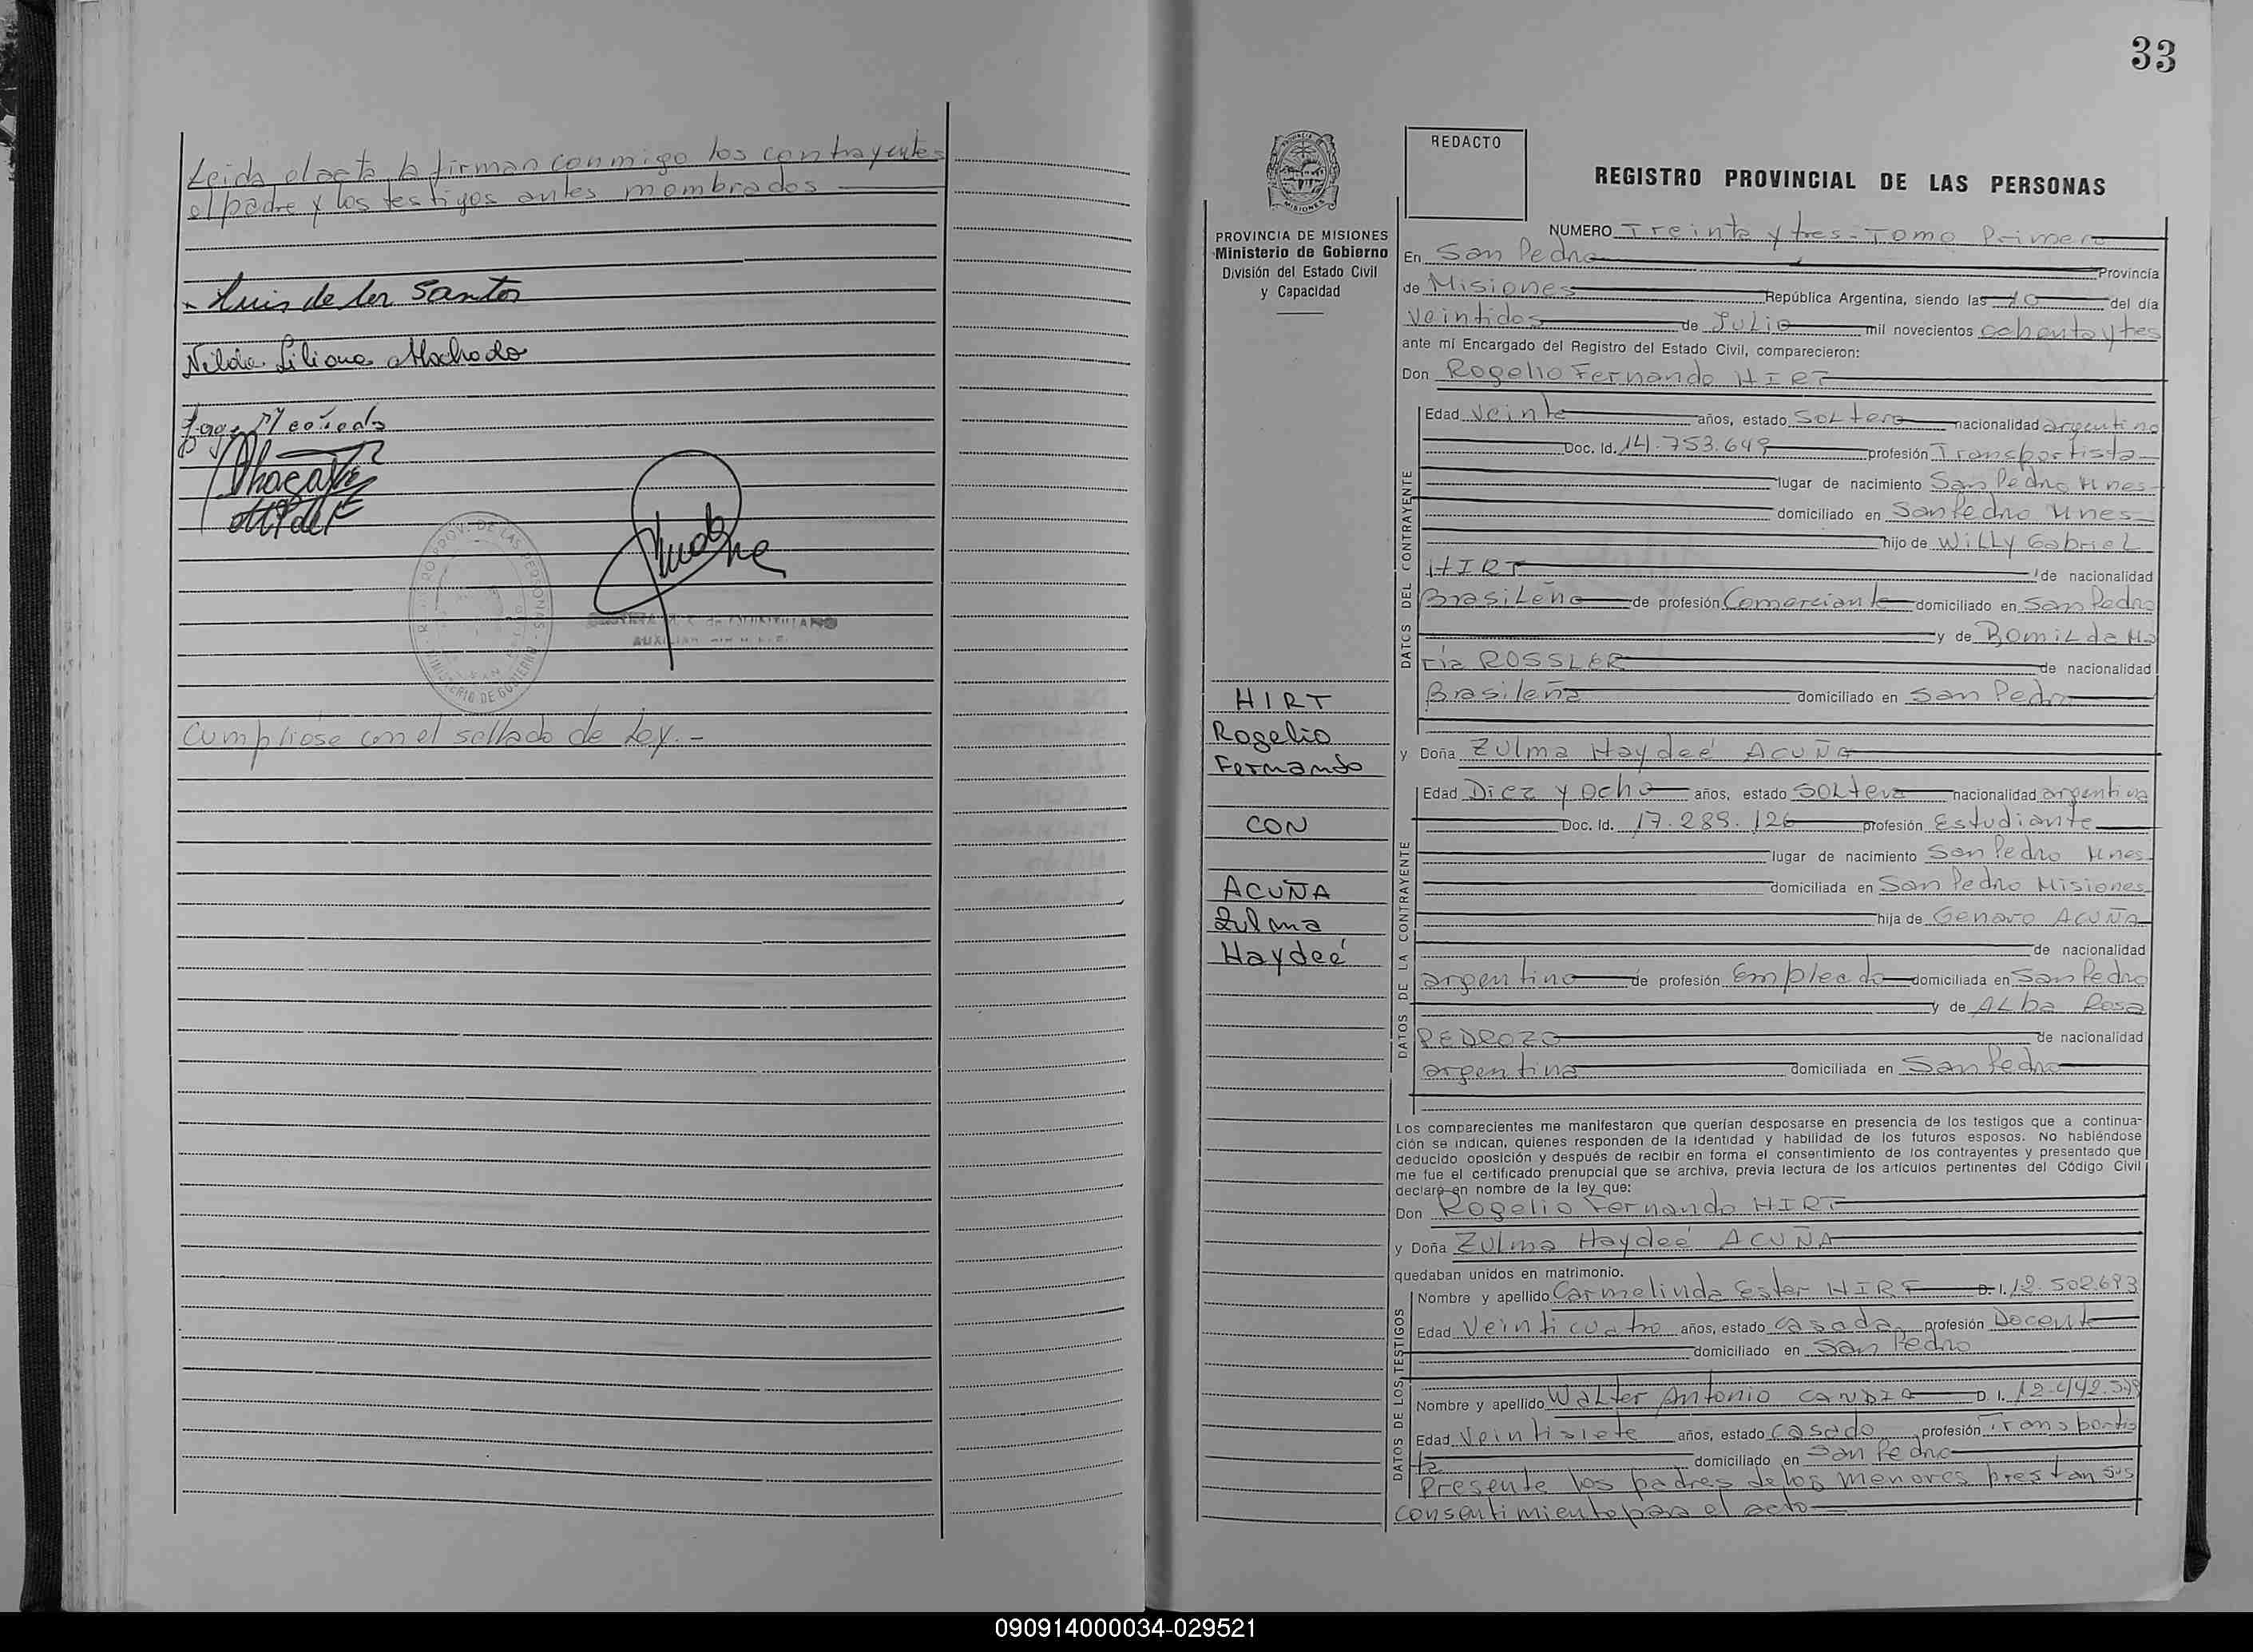 Leida el acta la firman conmigo los contrayentes
el padre y los testigos antes mombrados
Luis de los Santos
Nilda Liliana Machado
Cumpliose con el sellado de Ley.-
33
REDACTO
REGISTRO PROVINCIAL DE LAS PERSONAS
PROVINCIA DE MISIONES
Ministerio de Gobierno
División del Estado Civil
y Capacidad
HIRT
Rogelio
Fernando
CON
ACUÑA
Zulma
Haydeé
NUMERO Treinta y tres - Tomo Primero
En San Pedro Provincia
de Misiones República Argentina, siendo las 10 del día
Veintidos de Julio mil novecientos ochenta y tres
ante mí Encargado del Registro del Estado Civil, comparecieron:
Don Rogelio Fernando HIRT
DATOS DEL CONTRAYENTE
Edad Veinte años, estado Soltero nacionalidad argentino
Doc. Id. 14.753.649 profesión Transportista
lugar de nacimiento San Pedro Mnes
domiciliado en San Pedro Mnes
hijo de Willy Gabriel
HIRT de nacionalidad
Brasileño de profesión Comerciante domiciliado en San Pedro
y de Romilda Ma
ría ROSSLER de nacionalidad
Brasileña domiciliado en San Pedro
y Doña Zulma Haydeé ACUÑA
DATOS DE LA CONTRAYENTE
Edad Diez y ocho años, estado Soltera nacionalidad argentina
Doc. Id. 17.289.126 profesión Estudiante
lugar de nacimiento San Pedro Mnes
domiciliada en San Pedro Misiones
hija de Genaro ACUÑA
de nacionalidad
argentino de profesión Empleado domiciliada en San Pedro
y de Alba Rosa
PEDROZO de nacionalidad
argentina domiciliada en San Pedro
Los comparecientes me manifestaron que querían desposarse en presencia de los testigos que a continua-
ción se indican, quienes responden de la identidad y habilidad de los futuros esposos. No habiéndose
deducido oposición y después de recibir en forma el consentimiento de los contrayentes y presentado que
me fue el certificado prenupcial que se archiva, previa lectura de los artículos pertinentes del Código Civil
declaré en nombre de la ley que:
Don Rogelio Fernando HIRT
y Doña Zulma Haydeé ACUÑA
quedaban unidos en matrimonio.
DATOS DE LOS TESTIGOS
Nombre y apellido Carmelinda Ester HIRT D. I. 12.502.693
Edad Veinticuatro años, estado casada profesión Docente
domiciliado en San Pedro
Nombre y apellido Walter Antonio D. I.
Edad Veintisiete años, estado casado profesión Transportis
ta domiciliado en San Pedro
Presente los padres de los menores prestan sus
consentimiento para el acto
090914000034-029521